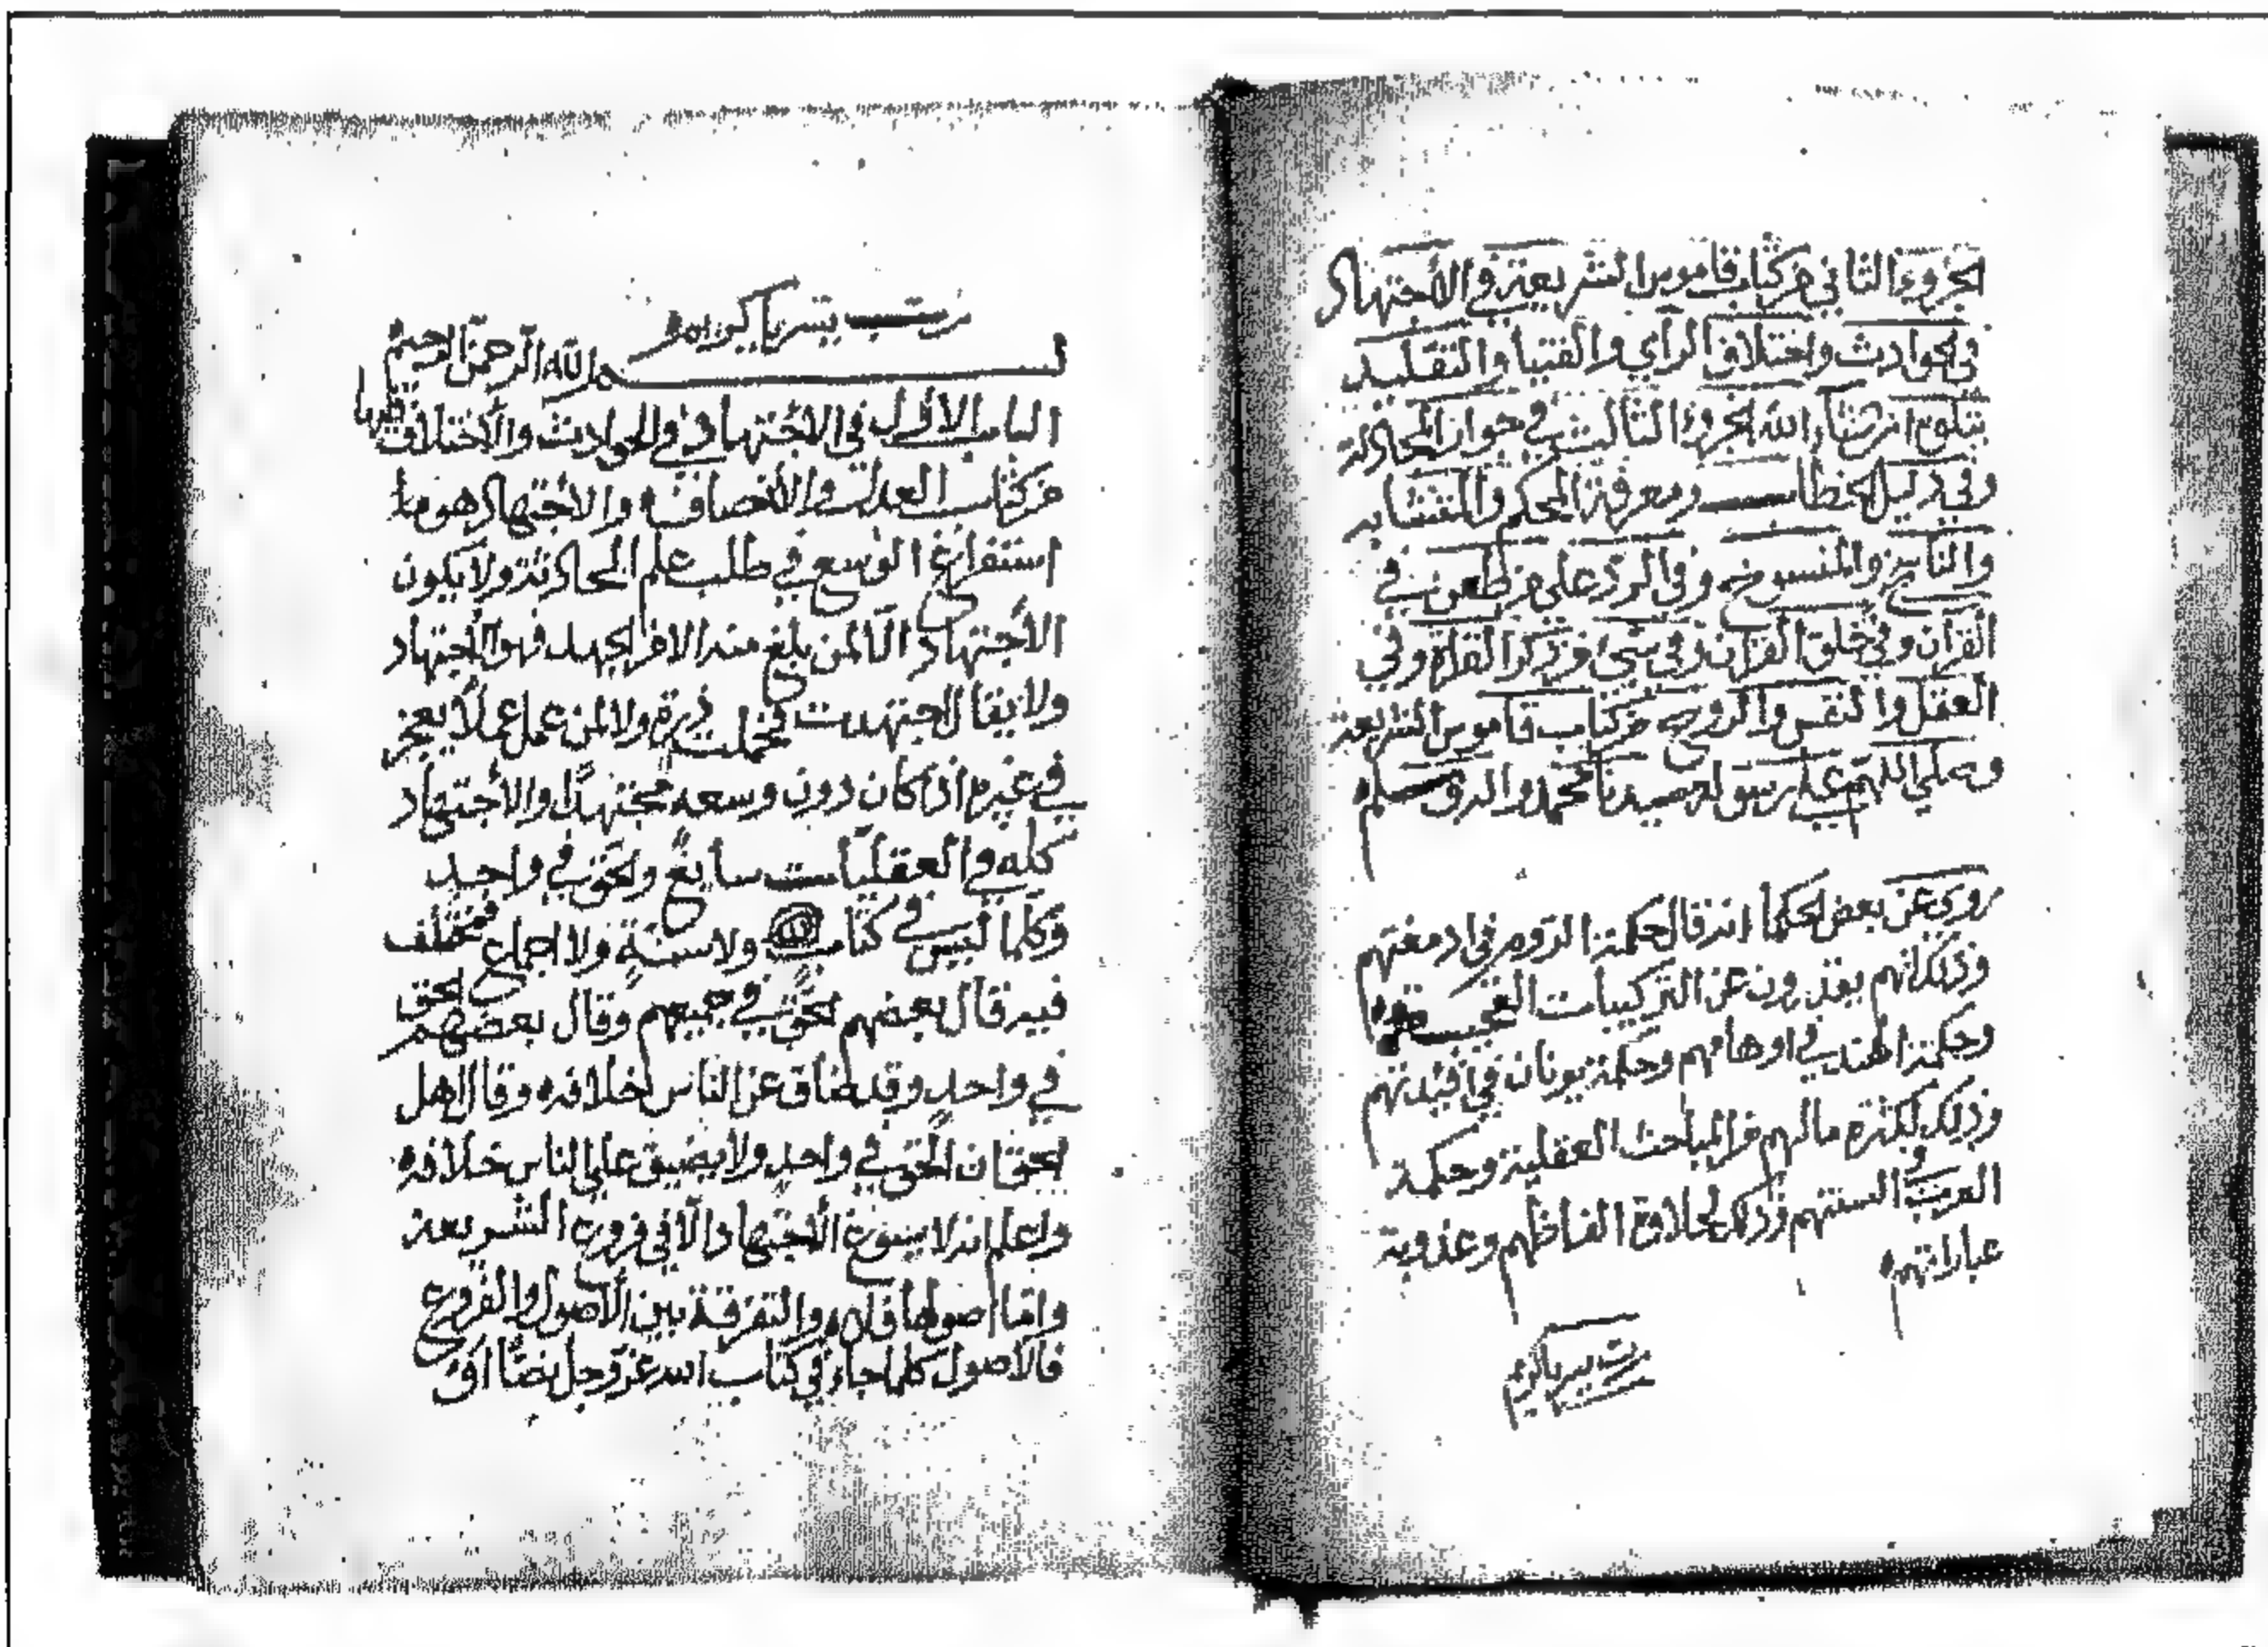 الجزؤ الثاني من كتاب قاموس الشريعة في الأجتهاد
في الحوادث واختلاف الرأي والفتيا والتقليد
يتلوه ان شاء الله الجزؤ الثالث في جواز المجادلة
وفي دليل الخطاب ومعرفة المحكم والمتشابه
والناسخ والمنسوخ وفي الرد على من طعن في
القرآن وفي خلق القرآن وفي شيء من ذكر القراة وفي
العقل والنفس والروح من كتاب قاموس الشريعة
وصلى اللهم على رسوله سيدنا محمد واله وسلم
روي عن بعض الحكما انه قال حكمة الروم في ادمغتهم
وذلك انهم يقدرون عن التركيبات العجيبة
وحكمة الهند في اوهامهم وحكمة يونان في افئدتهم
وذلك لكثرة مالهم من المباحث العقلية وحكمة
العرب في السنتهم وذلك لحلاوة الفاظهم وعذوبة
عباراتهم
رب يسر يا كريم
رب يسر يا كريم
بسم الله الرحمن الرحيم
الباب الاول في الاجتهاد وفي الحوادث والأختلاف فيها
من كتاب العدل والأنصاف والاجتهاد هو ما
استفراغ الوسع في طلب علم الحادثة ولا يكون
الأجتهاد الا لمن بلغ منه الامر الجهد فهو الأجتهاد
ولا يقال اجتهدت فحملت ذرة ولا لمن عمل عملا يعجز
في غيره اذ كان دون وسعه مجتهدا والأجتهاد
كله في العقليات سايغ والحق في واحد
وكلما ليس في كتاب الله ولا سنة ولا اجماع فمختلف
فيه قال بعضهم الحق في جميعهم وقال بعضهم الحق
في واحد وقد ضاق عن الناس خلافه وقال اهل
الحق ان الحق في واحد ولا يضيق على الناس خلافه
واعلم انه لا يسوغ الأجتهاد الا في فروع الشريعة
واما اصولها فلا والتفرقة بين الأصول والفروع
فالأصول كلما جاء في كتاب الله عز وجل نصا او